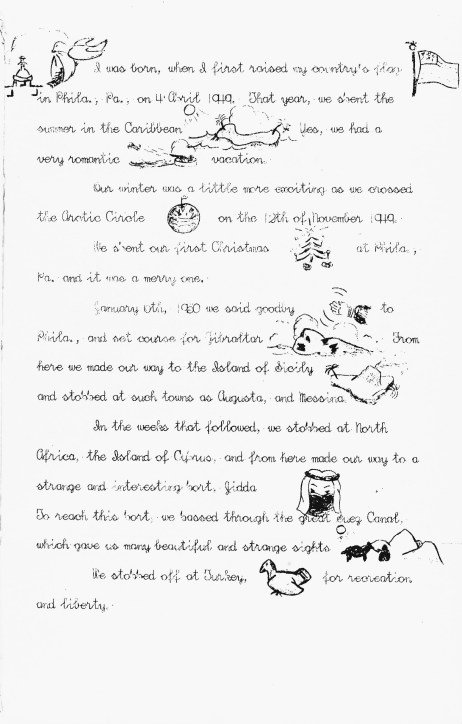 I was born, when I first raised my country's flag
in Phila., Pa., on 4 April 1949. That year, we spent the
summer in the Caribbean Yes, we had a
very romantic vacation.
Our winter was a little more exciting as we crossed
the Arctic Circle on the 12th of November 1949.
We spent our first Christmas at Phila.,
Pa. and it was a merry one.
January 6th, 1950 we said goodby to
Phila., and set course for Gibraltar From
here we made our way to the Island of Sicily
and stopped at such towns as Augusta, and Messina.
In the weeks that followed, we stopped at North
Africa, the Island of Cyprus, and from here made our way to a
strange and interesting port, Jidda
To reach this port, we passed through the great Suez Canal,
which gave us many beautiful and strange sights
We stopped off at Turkey, for recreation
and liberty.